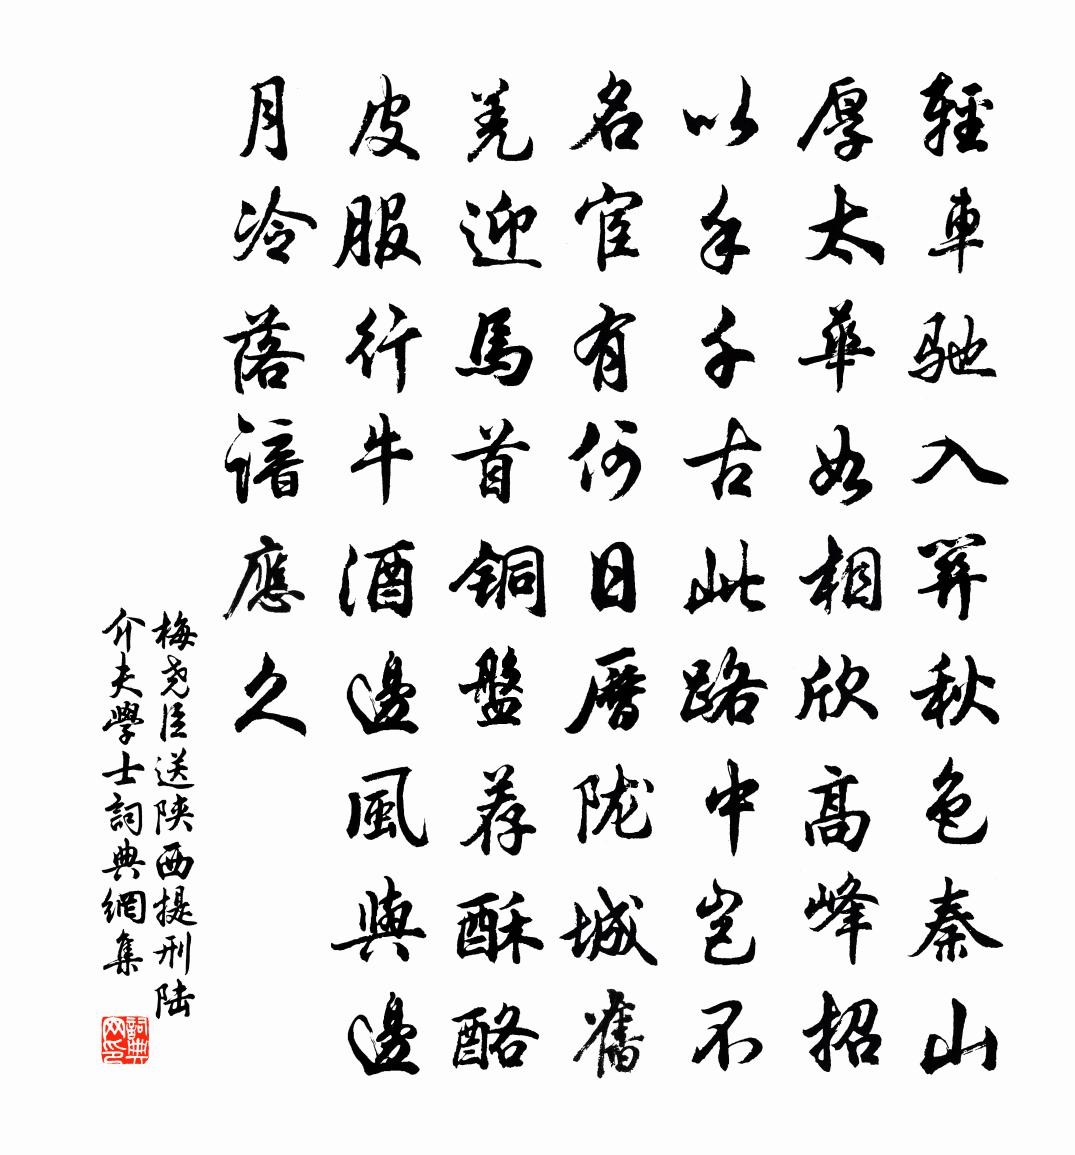 輕車馳入關秋色秦山
厚太華如相欣高峰招
以手千古此路中豈不
名宦有何日曆陇城舊
羌迎馬首銅盤荐酥酪
皮服行牛酒邊風與邊
月冷落諳應久
梅堯臣送陝西提刑陆
介夫學士詞典網集
詞典网印